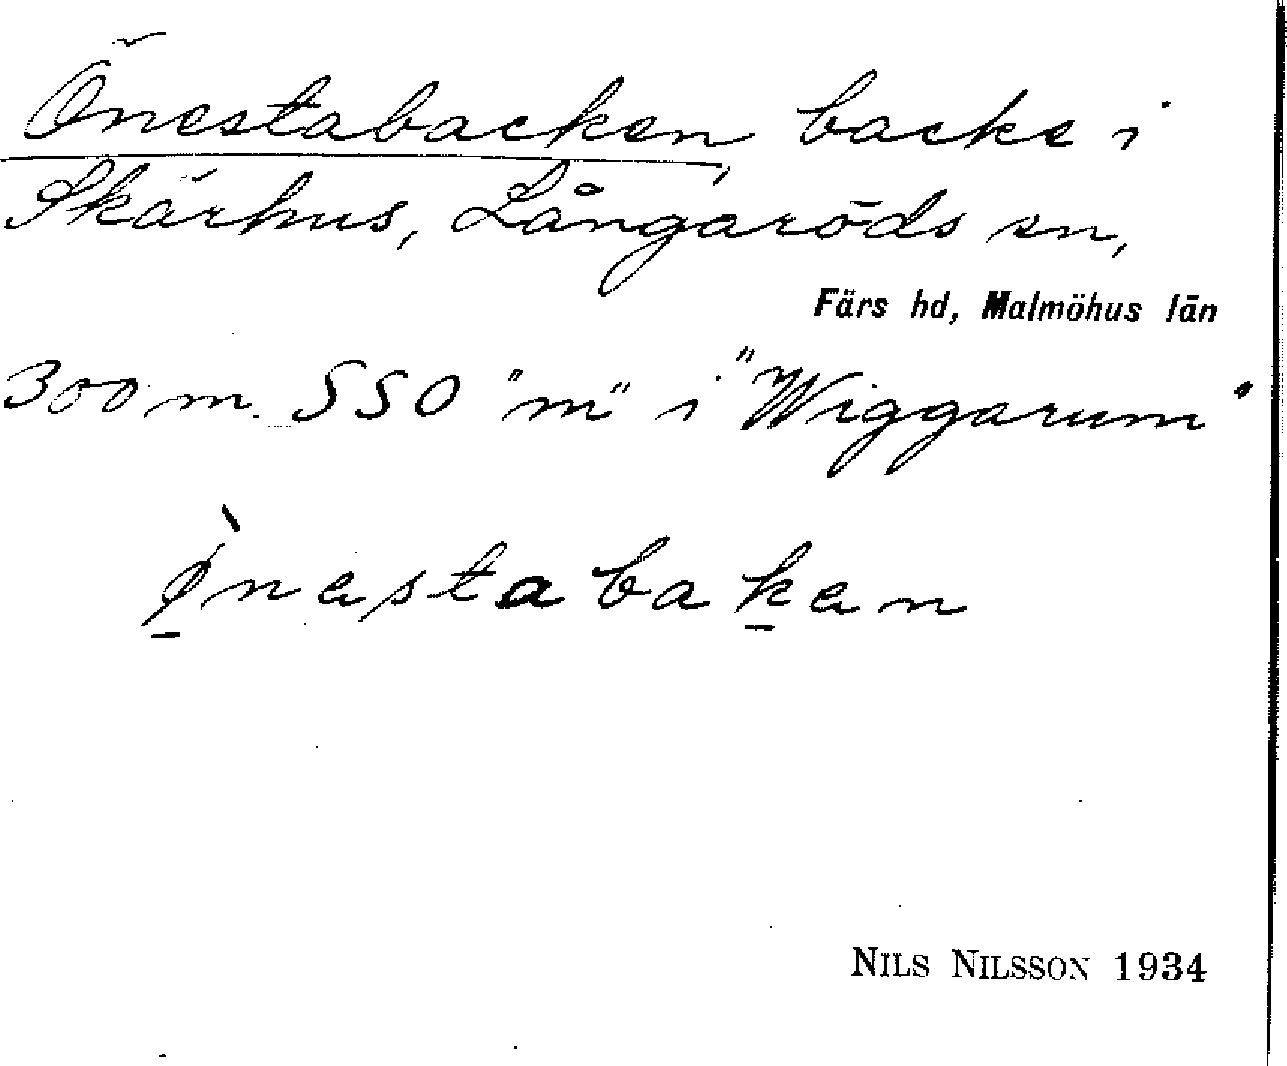 Önestabacken, backe i
Skärhus, Långaröds sn,
Färs hd, Malmöhus län
300 m. SSO "m" i "Wiggarum"
ø̱̀nestabaḵen
NILS NILSSON 1934